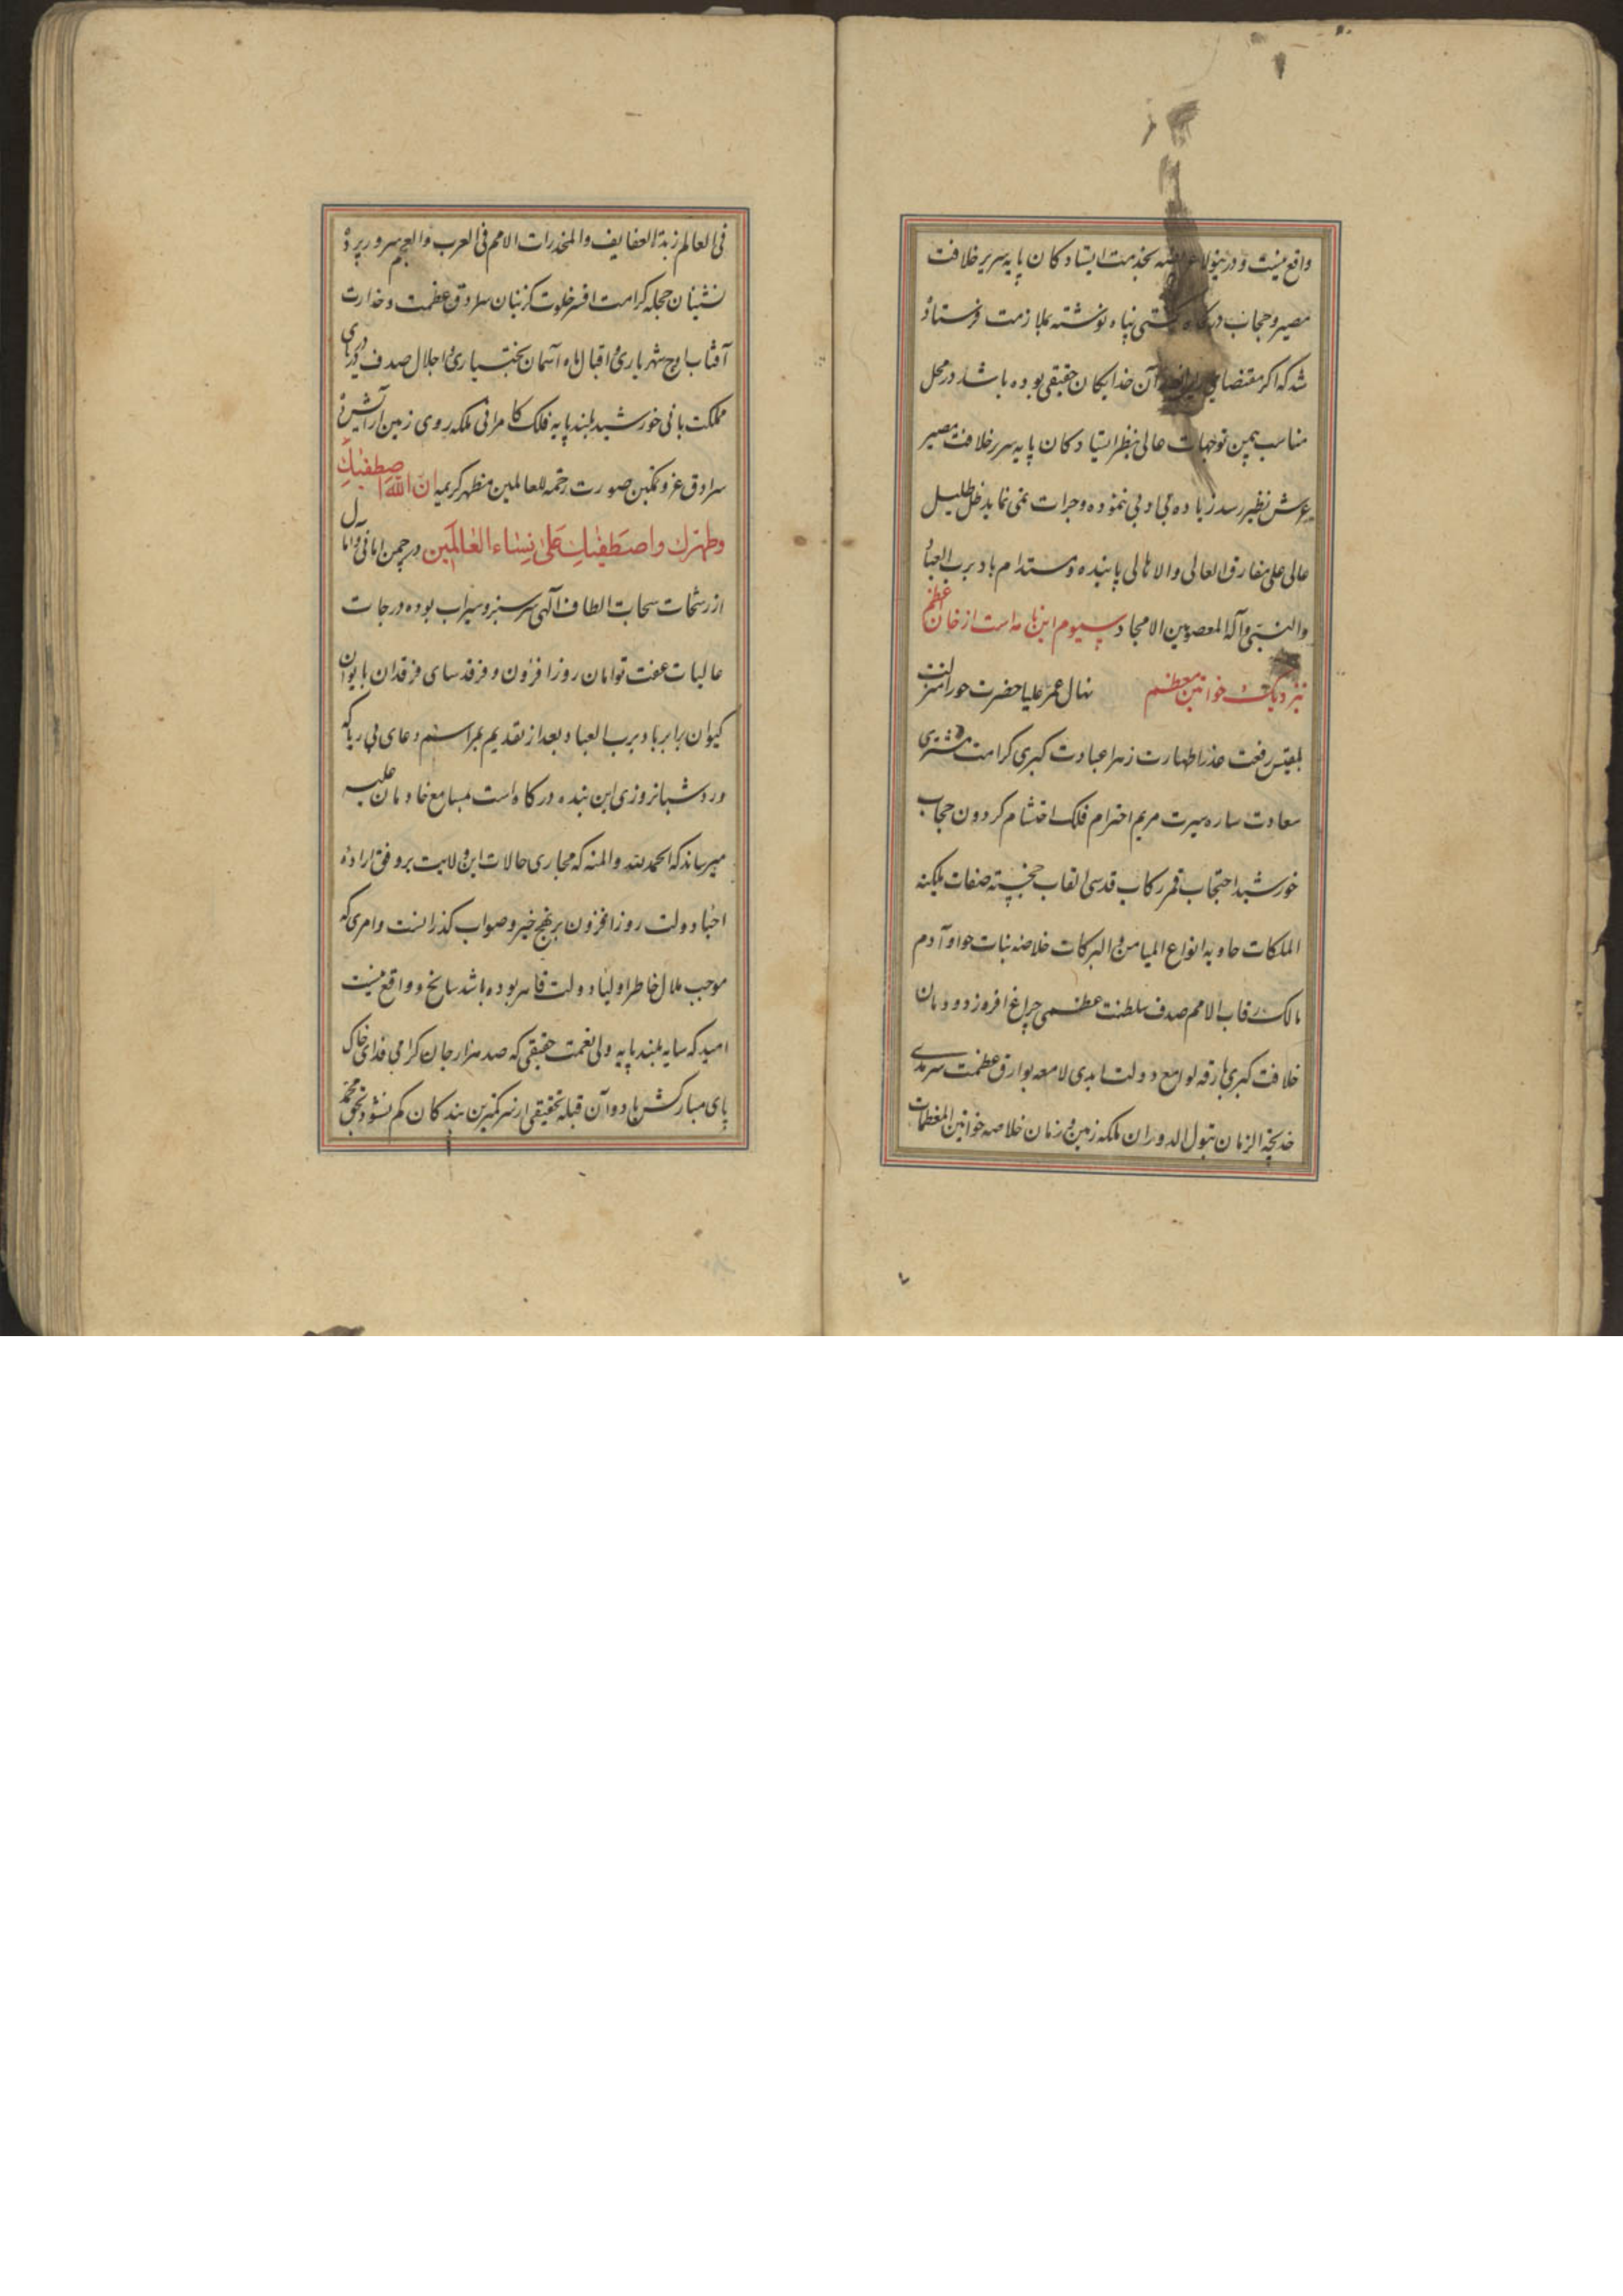 واقع نیست و درینولا عریضه بخدمت ایستادکان پایه سریر خلافت
مصیر و حجاب درکاه کیتی پناه نوشته بملازمت فرستاده
شد که اکر مقتضای آن خدایکان حقیقی بوده باشد در محل
مناسب بیمن توجهات عالی بنظر ایستادکان پایه سریر خلافت مصیر
عرش نظیر رسد زیاده بی ادبی ننموده و جرات نمی نماید ظل ظلیل
عالی علی مفارق العالی والاهالی پاینده و مستدام باد برب العباد
والنبی وآله المعصومین الامجاد سیوم این نامه است از خان اعظم
بنزدیک خواتین معظم نهال عمر علیا حضرت حورا منزلت
بلقیس رفعت عذرا طهارت زهرا عبادت کبری کرامت مشتری
سعادت ساره سیرت مریم احترام فلک احتشام کردون حجاب
خورشید احتجاب قمر رکاب قدسی القاب خجسته صفات ملیکه
الملکات حاویه انواع المیامن و البرکات خلاصه بنات حوا و آدم
مالک رقاب الامم صدف سلطنت عظمی چراغ افروز دودمان
خلافت کبری بارقه لوامع دولت ابدی لامعه بوارق عظمت سرمدی
خدیجة الزمان بتول الدوران ملکه زمین و زمان خلاصه خواتین المعظمات
فی العالم زبدة العفایف والمخدرات الامم فی العرب والعجم سرور پرده
نشینان حجله کرامت افسر خلوت کزینان سرادق عظمت و خدارت
آفتاب اوج شهریاری و اقبال ماه آسمان بختیاری و اجلال صدف دریای
مملکت بانی خورشید بلند پایه فلک کامرانی ملکه روی زمین آرایش ده
سرادق عز و تمکین صورت رحمة للعالمین مظهر کریمه ان الله اصطفیک
وطهرک واصطفیک علی نساء العالمین در چمن امانی و امال
از رشحات سحاب الطاف آلهی سرسبز و سیراب بوده درجات
عالیات عفت توامان روز افزون و فرقد سای فرقدان با ایوان
کیوان برابر باد برب العباد بعد از تقدیم مراسم دعای بی ریا که
ورد شبانروزی این بنده درکاه است بمسامع خادمان علیه
میرساند که الحمد لله والمنه که مجاری حالات این ولایت بر وفق اراده
احبا و دولت روز افزون بر نهج خیر و صواب کذرانست و امری که
موجب ملال خاطر اولیاء دولت قاهره بوده باشد سانح و واقع نیست
امید که سایه بلند پایه ولی نعمت حقیقی که صد هزار جان کرامی فدای خاک
پای مبارکش باد و آن قبله تحقیقی از سر کمترین بندکان کم نشود بحق محمد